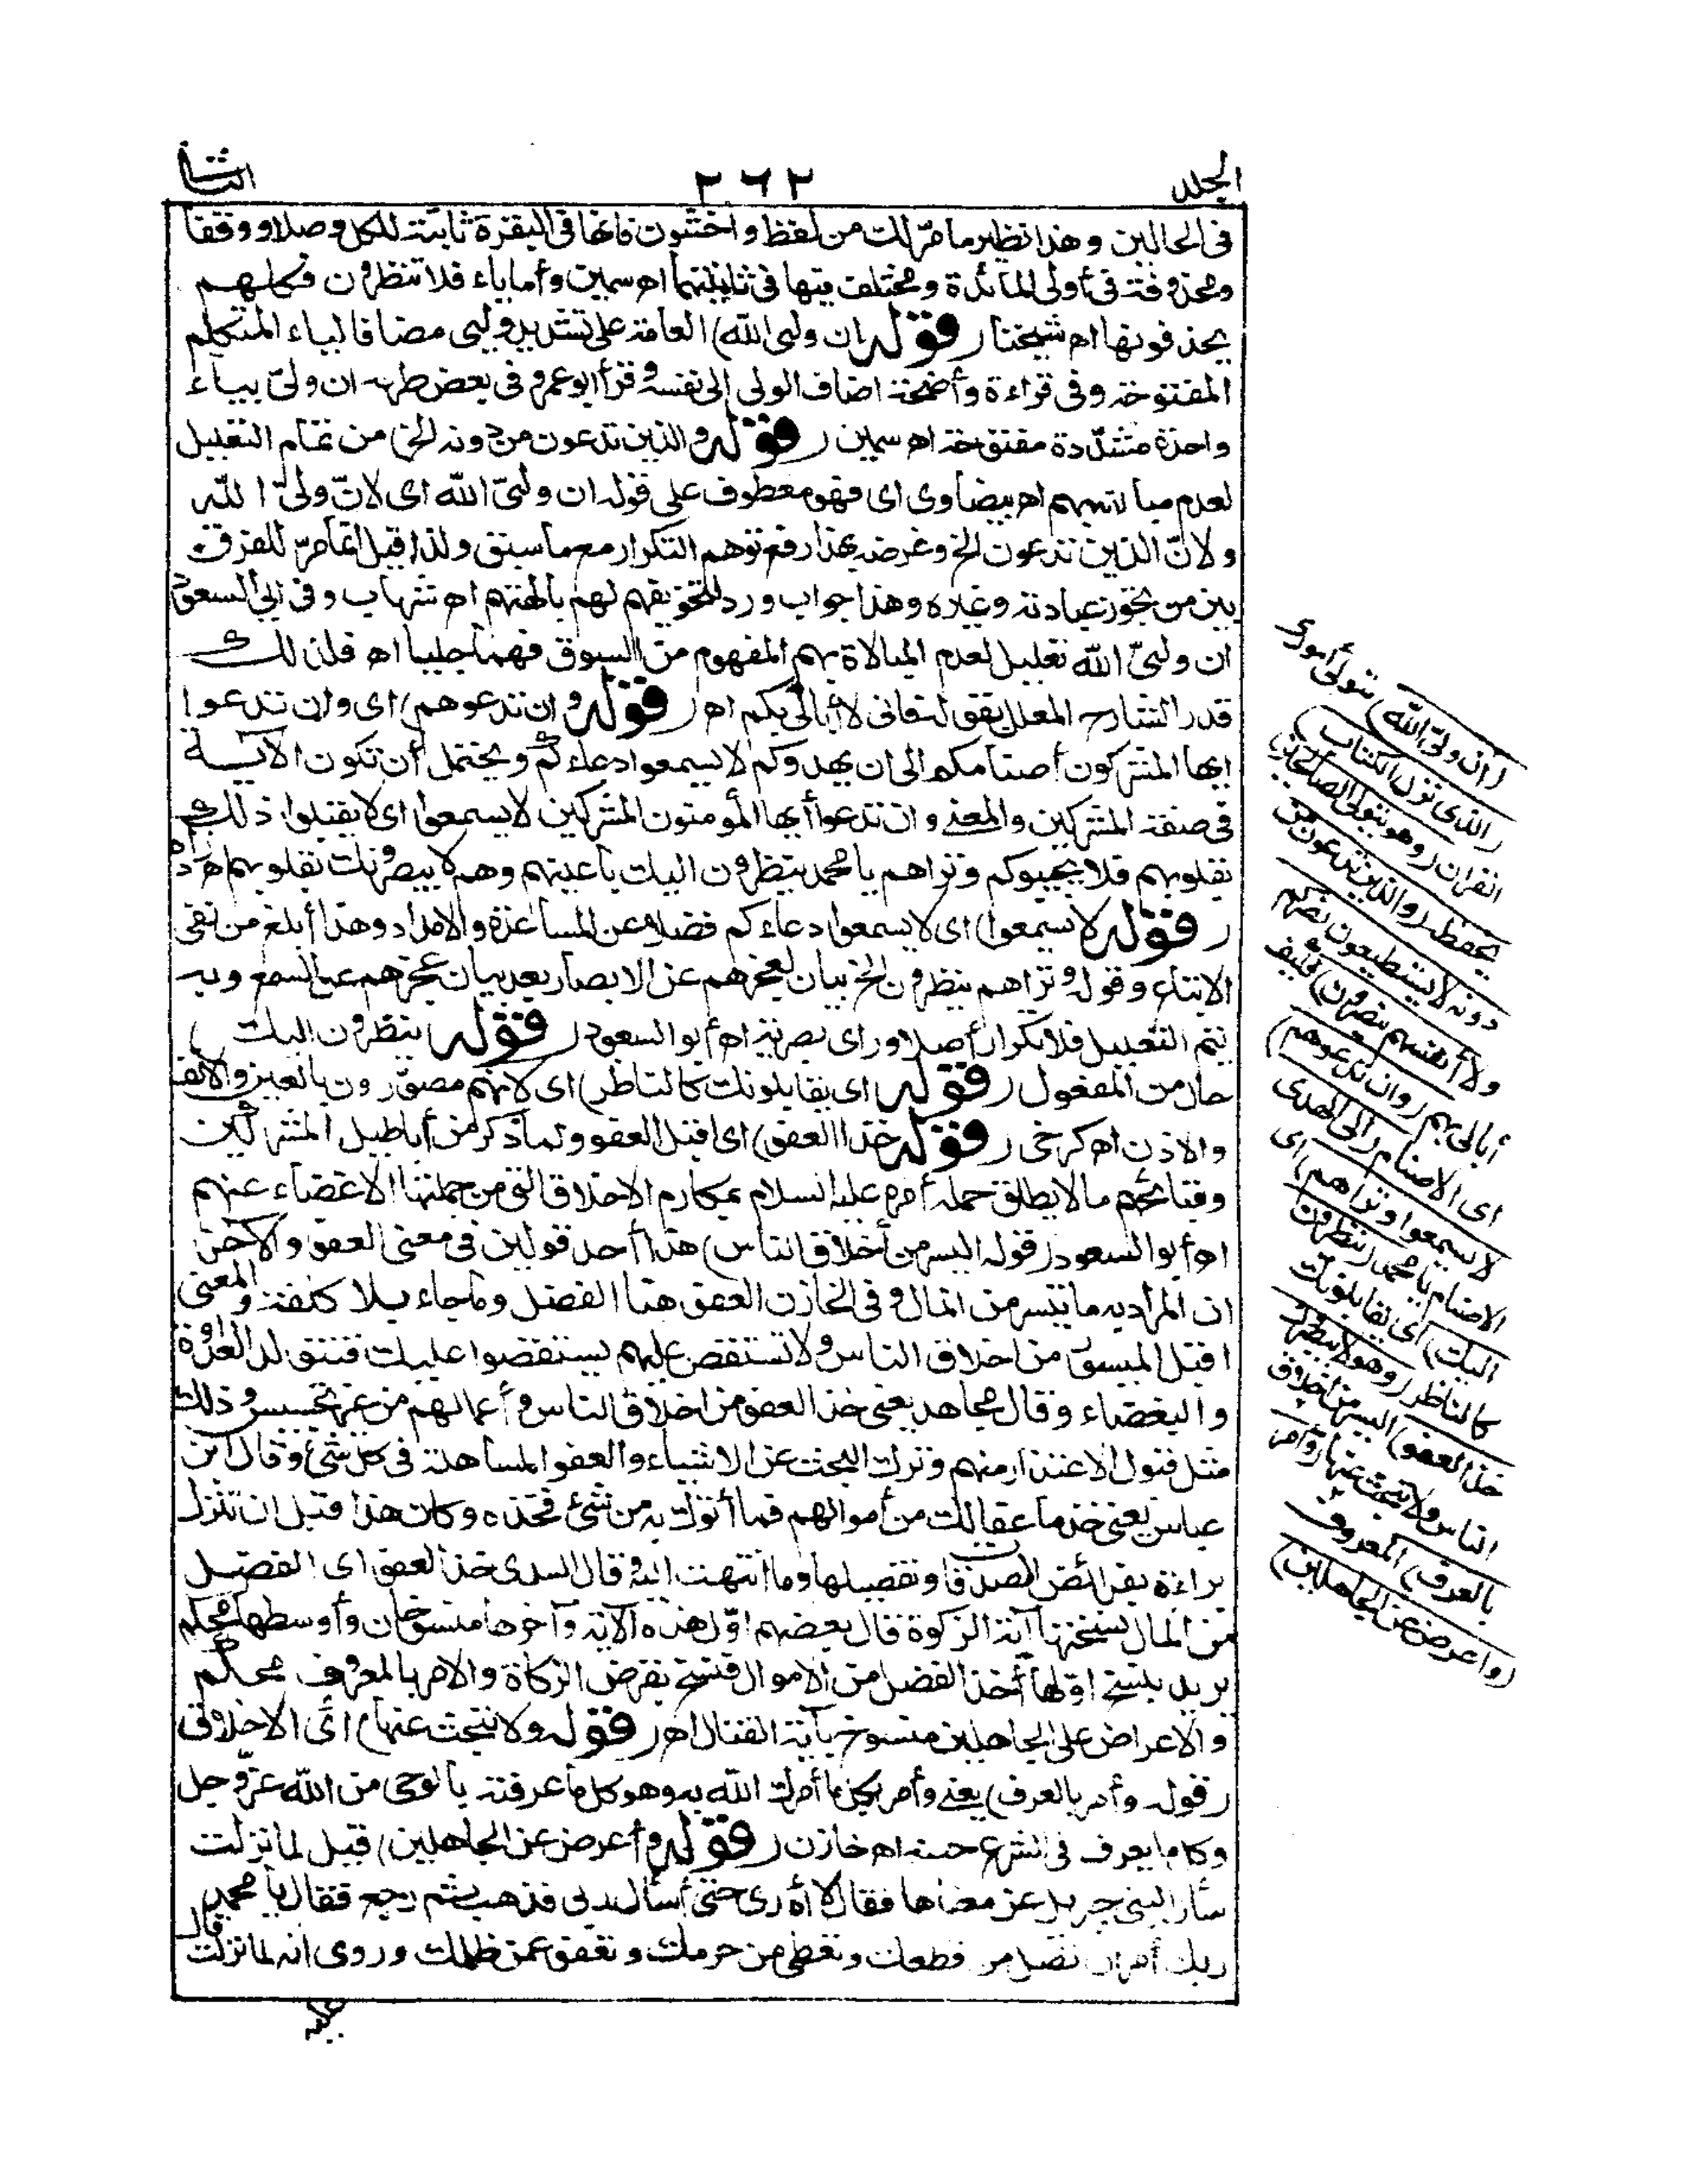 الجلد ٢٦٢ الثانى
فى الحالين وهذا نظير ما مرّ لك من لفظ واخشون فانها فى البقرة ثابتة للكل وصلا ووقفا
ومحذوفة فى أولى المائدة ومختلف فيها فى ثانيتها اه سمين وأما ياء فلا تنظرون فكلهم
يحذفونها اه شيخنا (قوله ان وليى الله) العامة على تشديد وليى مضافا لياء المتكلم
المفتوحة وفى قراءة واضحة اضاف الولى الى نفسه وقرأ ابو عمرو فى بعض طرقه ان ولىّ بياء
واحدة مشدّدة مفتوحة اه سمين (قوله والذين تدعون من دونه الخ) من تمام التعليل
لعدم مبالاته بهم اه بيضاوى اى فهو معطوف على قوله ان وليىّ الله اى لانّ ولىّ الله
ولانّ الذين تدعون الخ وغرضه بهذا رفع توهم التكرار مع ما سبق ولذا قيل انما مرّ للفرق
بين من تجوز عبادته وغيره وهذا جواب ورد لتخويفهم لهم بآلهتهم اه شهاب وفى ابى السعود
ان وليىّ الله تعليل لعدم المبالاة بهم المفهوم من السوق فهما جليا اه فلذلك
قدر الشارح المعلل بقوله فانى لا أبالى بكم اه (قوله وان تدعوهم) اى وان تدعوا
ايها المشركون أصنامكم الى ان يهدوكم لا يسمعوا دعاءكم ويحتمل أن تكون الآية
فى صفة المشركين والمعنى وان تدعوا أيها المؤمنون المشركين لا يسمعوا اى لا يقبلوا ذلك
بقلوبهم فلا يجيبوكم وتراهم يا محمد ينظرون اليك بأعينهم وهم لا يبصرونك بقلوبهم اه
(قوله لا يسمعوا) اى لا يسمعوا دعاءكم فضلا عن المساعدة والامداد وهذا أبلغ من نفى
الاتباع وقوله وتراهم ينظرون الخ بيان لعجزهم عن الابصار بعد بيان عجزهم عن السمع وبه
يتم التعليل فلا تكرار أصلا ورأى بصرية اه أبو السعود (قوله ينظرون اليك)
حال من المفعول (قوله اى يقابلونك كالناظر) اى لانهم مصوّرون بالعين والانف
والاذن اه كرخى (قوله خذ العفو) اى اقبل العفو ولما ذكر من أباطيل المشركين
وقبائحهم ما لا يطاق حمله أمره عليه السلام بمكارم الاخلاق التى من جملتها الاغضاء عنهم
اه أبو السعود (قوله اليسر من أخلاق الناس) هذا أحد قولين فى معنى العفو والآخر
ان المراد به ما تيسر من المال وفى الخازن العفو هنا الفضل وما جاء بلا كلفة والمعنى
اقبل الميسور من اخلاق الناس ولا تستقص عليهم يستقصوا عليك فتتولد العداوة
والبغضاء وقال مجاهد يعنى خذ العفو من اخلاق الناس وأعمالهم من غير تجسيس وذلك
مثل قبول الاعتذار منهم وترك البحث عن الاشياء والعفو المساهلة فى كل شئ وقال ابن
عباس يعنى خذ ما عفا لك من أموالهم فما أتوك به من شئ فخذه وكان هذا قبل ان تنزل
براءة بفرائض الصدقات وتفصيلها وما انتهت اليه وقال السدى خذ العفو اى الفضل
من المال نسختها آية الزكوة قال بعضهم اوّل هذه الآية وآخرها منسوخان وأوسطها محكم
يريد بنسخ اوّلها أخذ الفضل من الاموال فنسخ بفرض الزكاة والامر بالمعروف محكم
والاعراض على الجاهلين منسوخ بآية القتال اه (قوله ولا تبحث عنها) اى الاخلاق
(قوله وأمر بالعرف) يعنى وأمر بكل ما أمرك الله به وهو كل ما عرفته بالوحى من الله عزّ وجل
وكل ما يعرف فى الشرع حسنه اه خازن (قوله وأعرض عن الجاهلين) قيل لما نزلت
سأل النبى جبريل عن معناها فقال لا أدرى حتى أسأل ربى فذهب ثم رجع فقال يا محمد
ربك أمرك ان تصل من قطعك وتعطى من حرمك وتعفو عمن ظلمك وروى انه لما نزلت
قال
يتولى أمورى
(ان وليّ الله)
الذى نزل الكتاب)
القران (وهو يتولى الصالحين)
بحفظه (والذين تدعون من
دونه لا يستطيعون نصركم
ولا أنفسهم ينصرون) فكيف
أبالى بهم (وان تدعوهم)
اى الاصنام (الى الهدى
لا يسمعوا وتراهم) اى
الاصنام يا محمد (ينظرون
اليك) اى يقابلونك
كالناظر (وهم لا يبصرون
خذ العفو) اليسر من اخلاق
الناس ولا تبحث عنها (وأمر
بالعرف) المعروف
(واعرض عن الجاهلين)